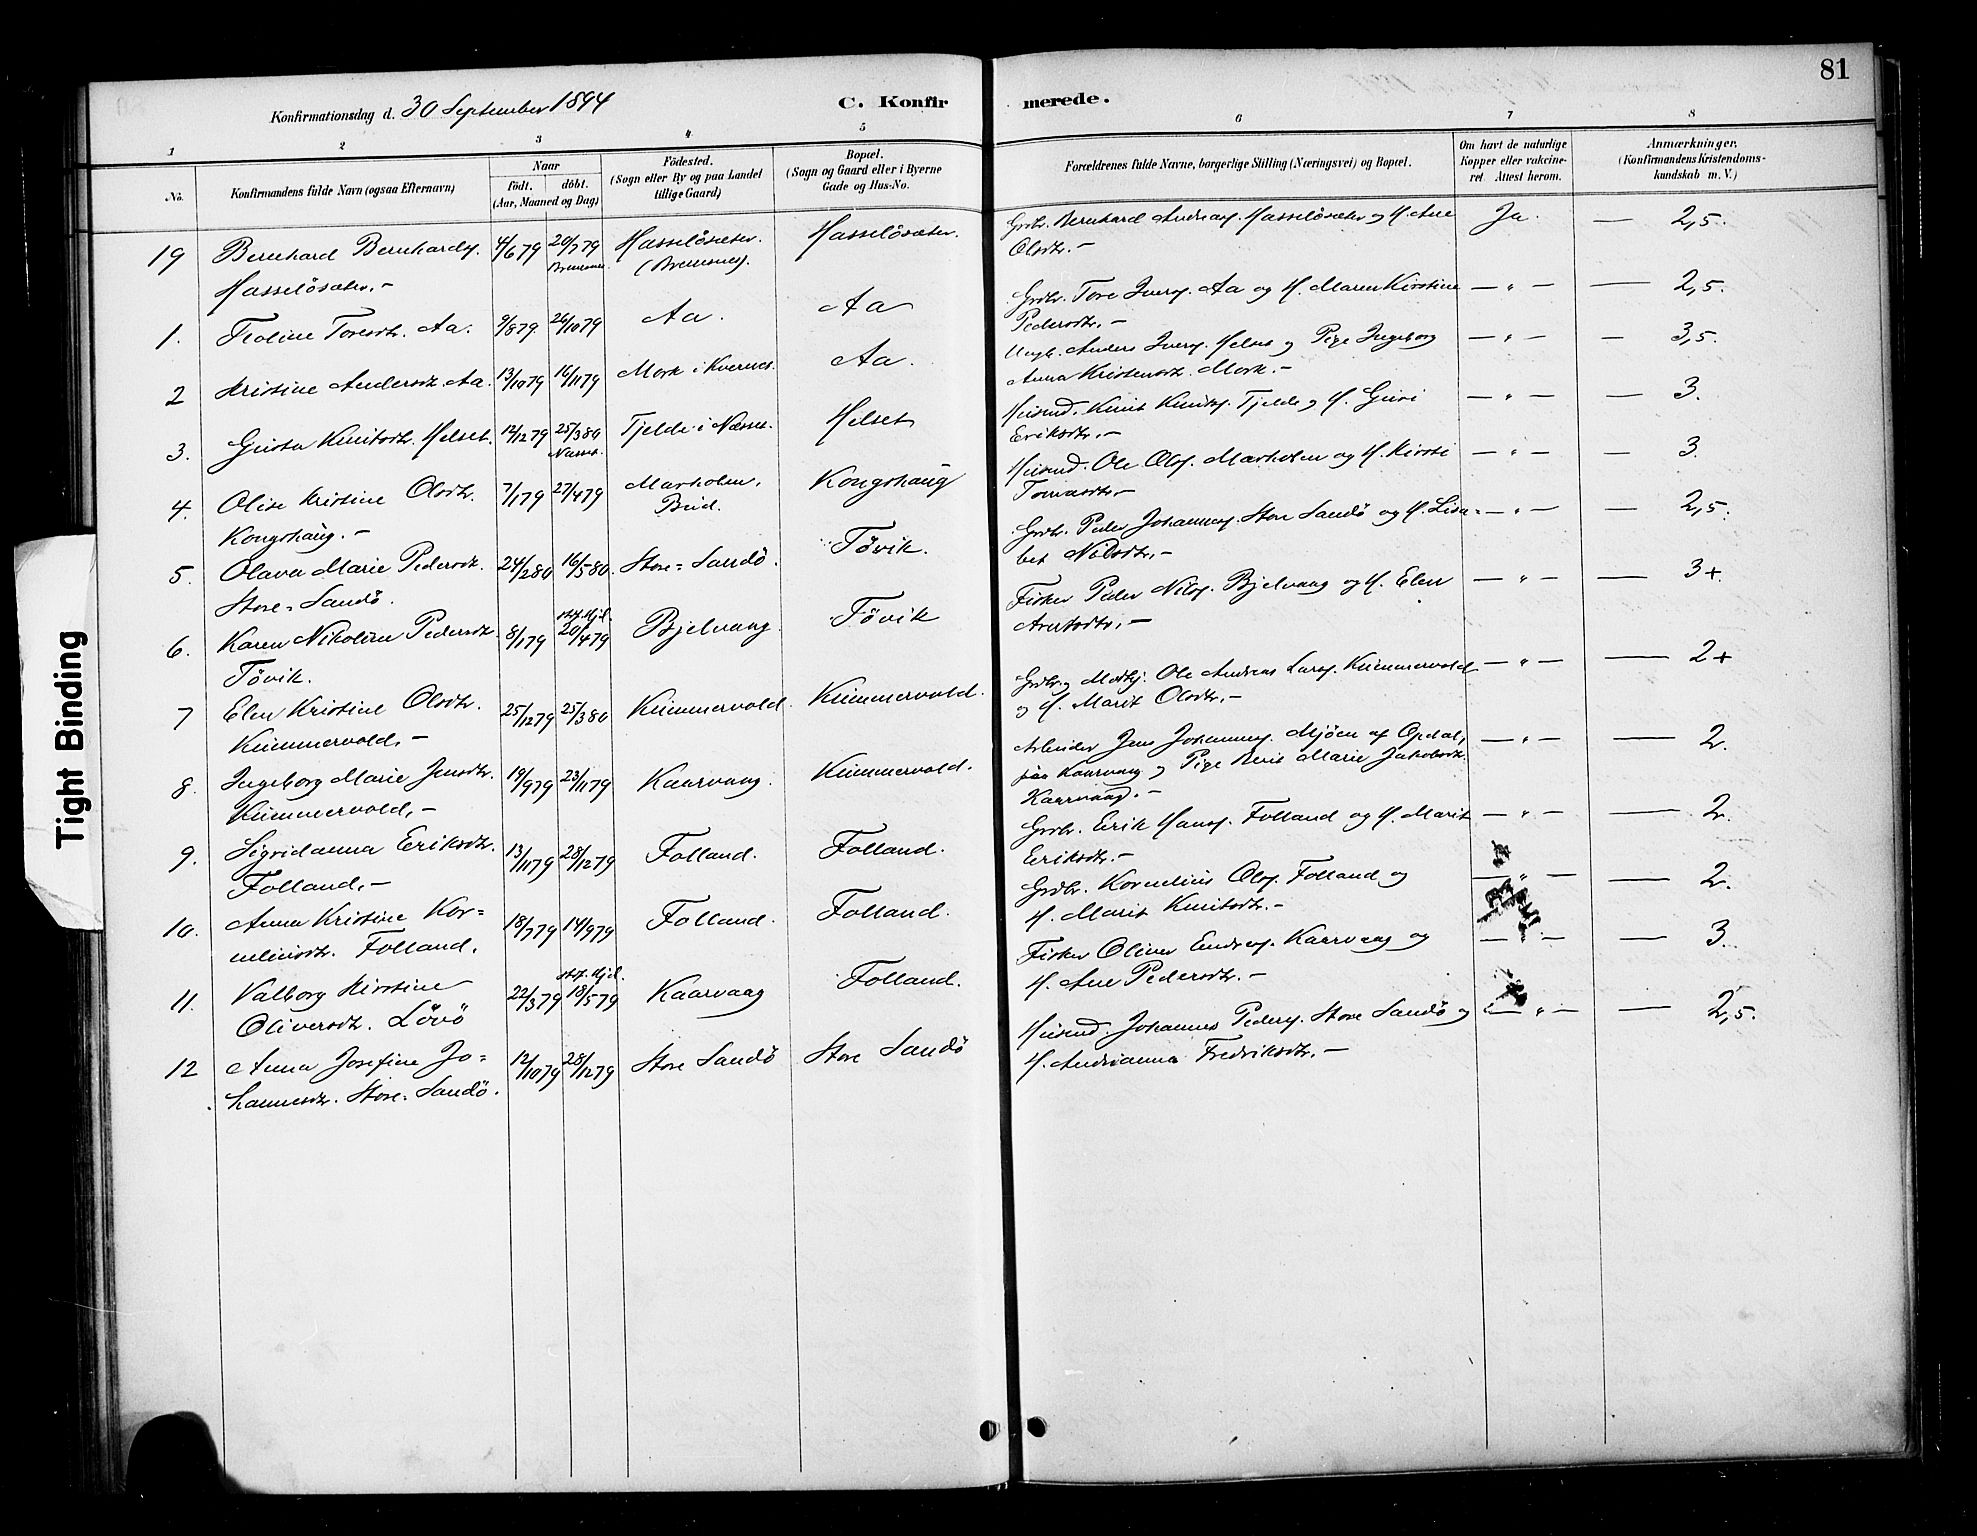 81
Konfirmationsdag d. 30 September 1894
C. Konfirmerede.
1 2 3 4 5 6 7 8
No.
Konfirmandens fulde Navn (ogsaa Efternavn)
Naar
født. døbt.
(Aar, Maaned og Dag)
Födested.
(Sogn eller By og paa Landet
tillige Gaard)
Bopæl.
(Sogn og Gaard eller i Byerne
Gade og Hus-No.
Forældrenes fulde Navne, borgerlige Stilling (Næringsvei) og Bopæl.
Om havt de naturlige
Kopper eller vakcine-
ret. Attest herom.
Anmærkninger.
(Konfirmandens Kristendoms-
kundskab m. V.)
19 Bernhard Bernhards. 4/6 79 20/7 79 Hasselösæter. Hasselösæter. Grdbr. Bernhard Andreas. Hasselösæter og H. Ane Ja. — 2,5.
Hasselösæter.- Bremsnes (Bremsnes). Olsdtr.-
1. Toline Toresdtr. Aa. 9/8 79 26/10 79 Aa. Aa Grdbr. Tore Ivers. Aa og H. Maren Kirstine — " — — 2,5.
Pedersdtr.-
2 Kristine Andersdtr. Aa. 13/10 79 16/11 79 Mork i Kvernes. Aa. Ungk. Anders Ivers. Helset og Pige Ingeborg — " — — 3,5.
Anna Kristensdtr. Mork.-
3. Gurta Knutsdtr. Helset. 12/12 79 25/3 80 Tjelde i Nesset. Helset Husmd. Knut Knuts. Tjelde og H. Guri — " — — 3.
Nesset. Eriksdtr.-
4. Olise Kristine Olsdtr. 7/1 79 27/4 79 Marholm, Kongshaug Husmd. Ole Ols. Marholm og H. Kirsti — " — — 3.
Kongshaug.- Bud. Tomasdtr.-
5. Olava Marie Pedersdtr. 24/2 80 16/5 80. Store-Sandö. Tövik. Grdbr. Peder Johannes. Store Sandö og H. Lisa- — " — — 2,5.
Store-Sandö. bet Nilsdtr.-
6. Karen Nikoline Pedersdtr. 8/1 79 20/4 79 Bjelvaag Tövik Fisker Peder Nils. Bjelvaag og H. Elen — " — — 3+.
Tövik. Arntsdtr.-
7 Elen Kristine Olsdtr. 25/12 79 25/3 80 Kummervold. Kummervold. Grdbr. og Ole Andreas Lars. Kummervold — " — — 2+
Kummervold.- og H. Marit Olsdtr.-
8. Ingeborg Marie Jensdtr. 19/9 79 23/11 79 Kaarvaag. Kummervold. Arbeider Jens Johannes. Mjöen af Opdal, — " — — 2.
Kummervold.- paa Kaarvaag og Pige Marie Jakobsdtr.
Kaarvaag.-
9. Sigridanna Eriksdtr. 13/11 79 28/12 79 Folland. Folland. Grdbr. Erik Hans. Folland og H. Marit — " — — 2.
Folland.- Eriksdtr.-
10. Anna Kristine Kor= 18/7 79 14/9 79 Folland. Folland. Grdbr. Kornelius Ols. Folland og — " — — 2.
neliusdtr. Folland. H. Marit Knutsdtr.-
11. Valborg Kirstine 22/3 79 18/5 79 Kaarvaag Folland. Fisker Oliver Kaarvaag og — " — — 3.
Oliversdtr. Lövö H. Ane Pedersdtr.-
12 Anna Josefine Jo= 12/10 79 28/12 79 Store Sandö Store Sandö Husmd. Johannes Peders. Store Sandö og — " — — 2,5.
hannesdtr. Store-Sandö. H. Andrianna Fredriksdtr.-
Tight Binding